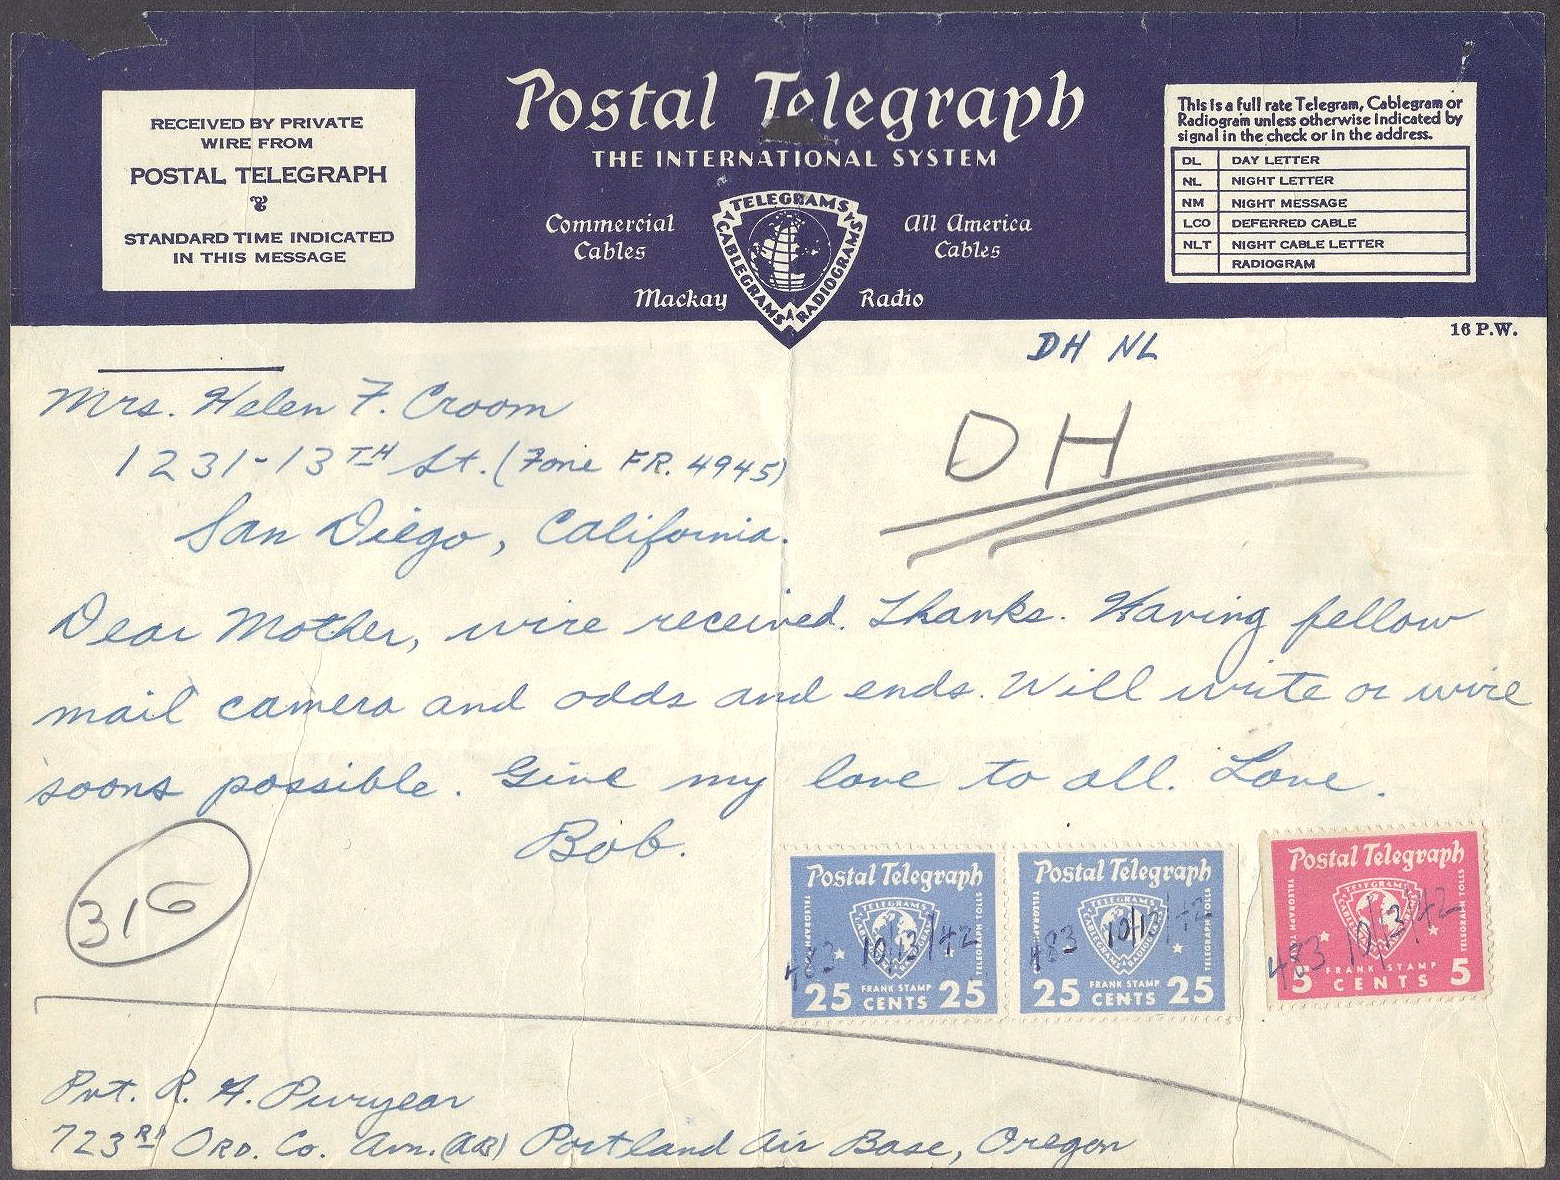 RECEIVED BY PRIVATE
WIRE FROM
POSTAL TELEGRAPH
STANDARD TIME INDICATED
IN THIS MESSAGE
Postal Telegraph
THE INTERNATIONAL SYSTEM
Commercial
Cables
All America
Cables
Mackay Radio
TELEGRAMS
CABLEGRAMS
RADIOGRAMS
This is a full rate Telegram, Cablegram or
Radiogram unless otherwise indicated by
signal in the check or in the address.
DL DAY LETTER
NL NIGHT LETTER
NM NIGHT MESSAGE
LCO DEFERRED CABLE
NLT NIGHT CABLE LETTER
RADIOGRAM
16 P.W.
DH NL
Mrs. Helen F. Croom
1231-13TH St. (Fone FR. 4945)
San Diego, California.
DH
Dear Mother, wire received. Thanks. Having fellow
mail camera and odds and ends. Will write or wire
soons possible. Give my love to all. Love.
Bob.
316
Postal Telegraph
TELEGRAPH TOLLS
TELEGRAMS
CABLEGRAMS
RADIOGRAMS
483 10/13/42
25 FRANK STAMP 25
CENTS
Postal Telegraph
TELEGRAPH TOLLS
TELEGRAMS
CABLEGRAMS
RADIOGRAMS
483 10/13/42
25 FRANK STAMP 25
CENTS
Postal Telegraph
TELEGRAPH TOLLS
TELEGRAMS
CABLEGRAMS
RADIOGRAMS
483 10/13/42
5 FRANK STAMP 5
CENTS
Pvt. R. A. Puryear
723RD ORD. Co. Avn. (AB) Portland Air Base, Oregon